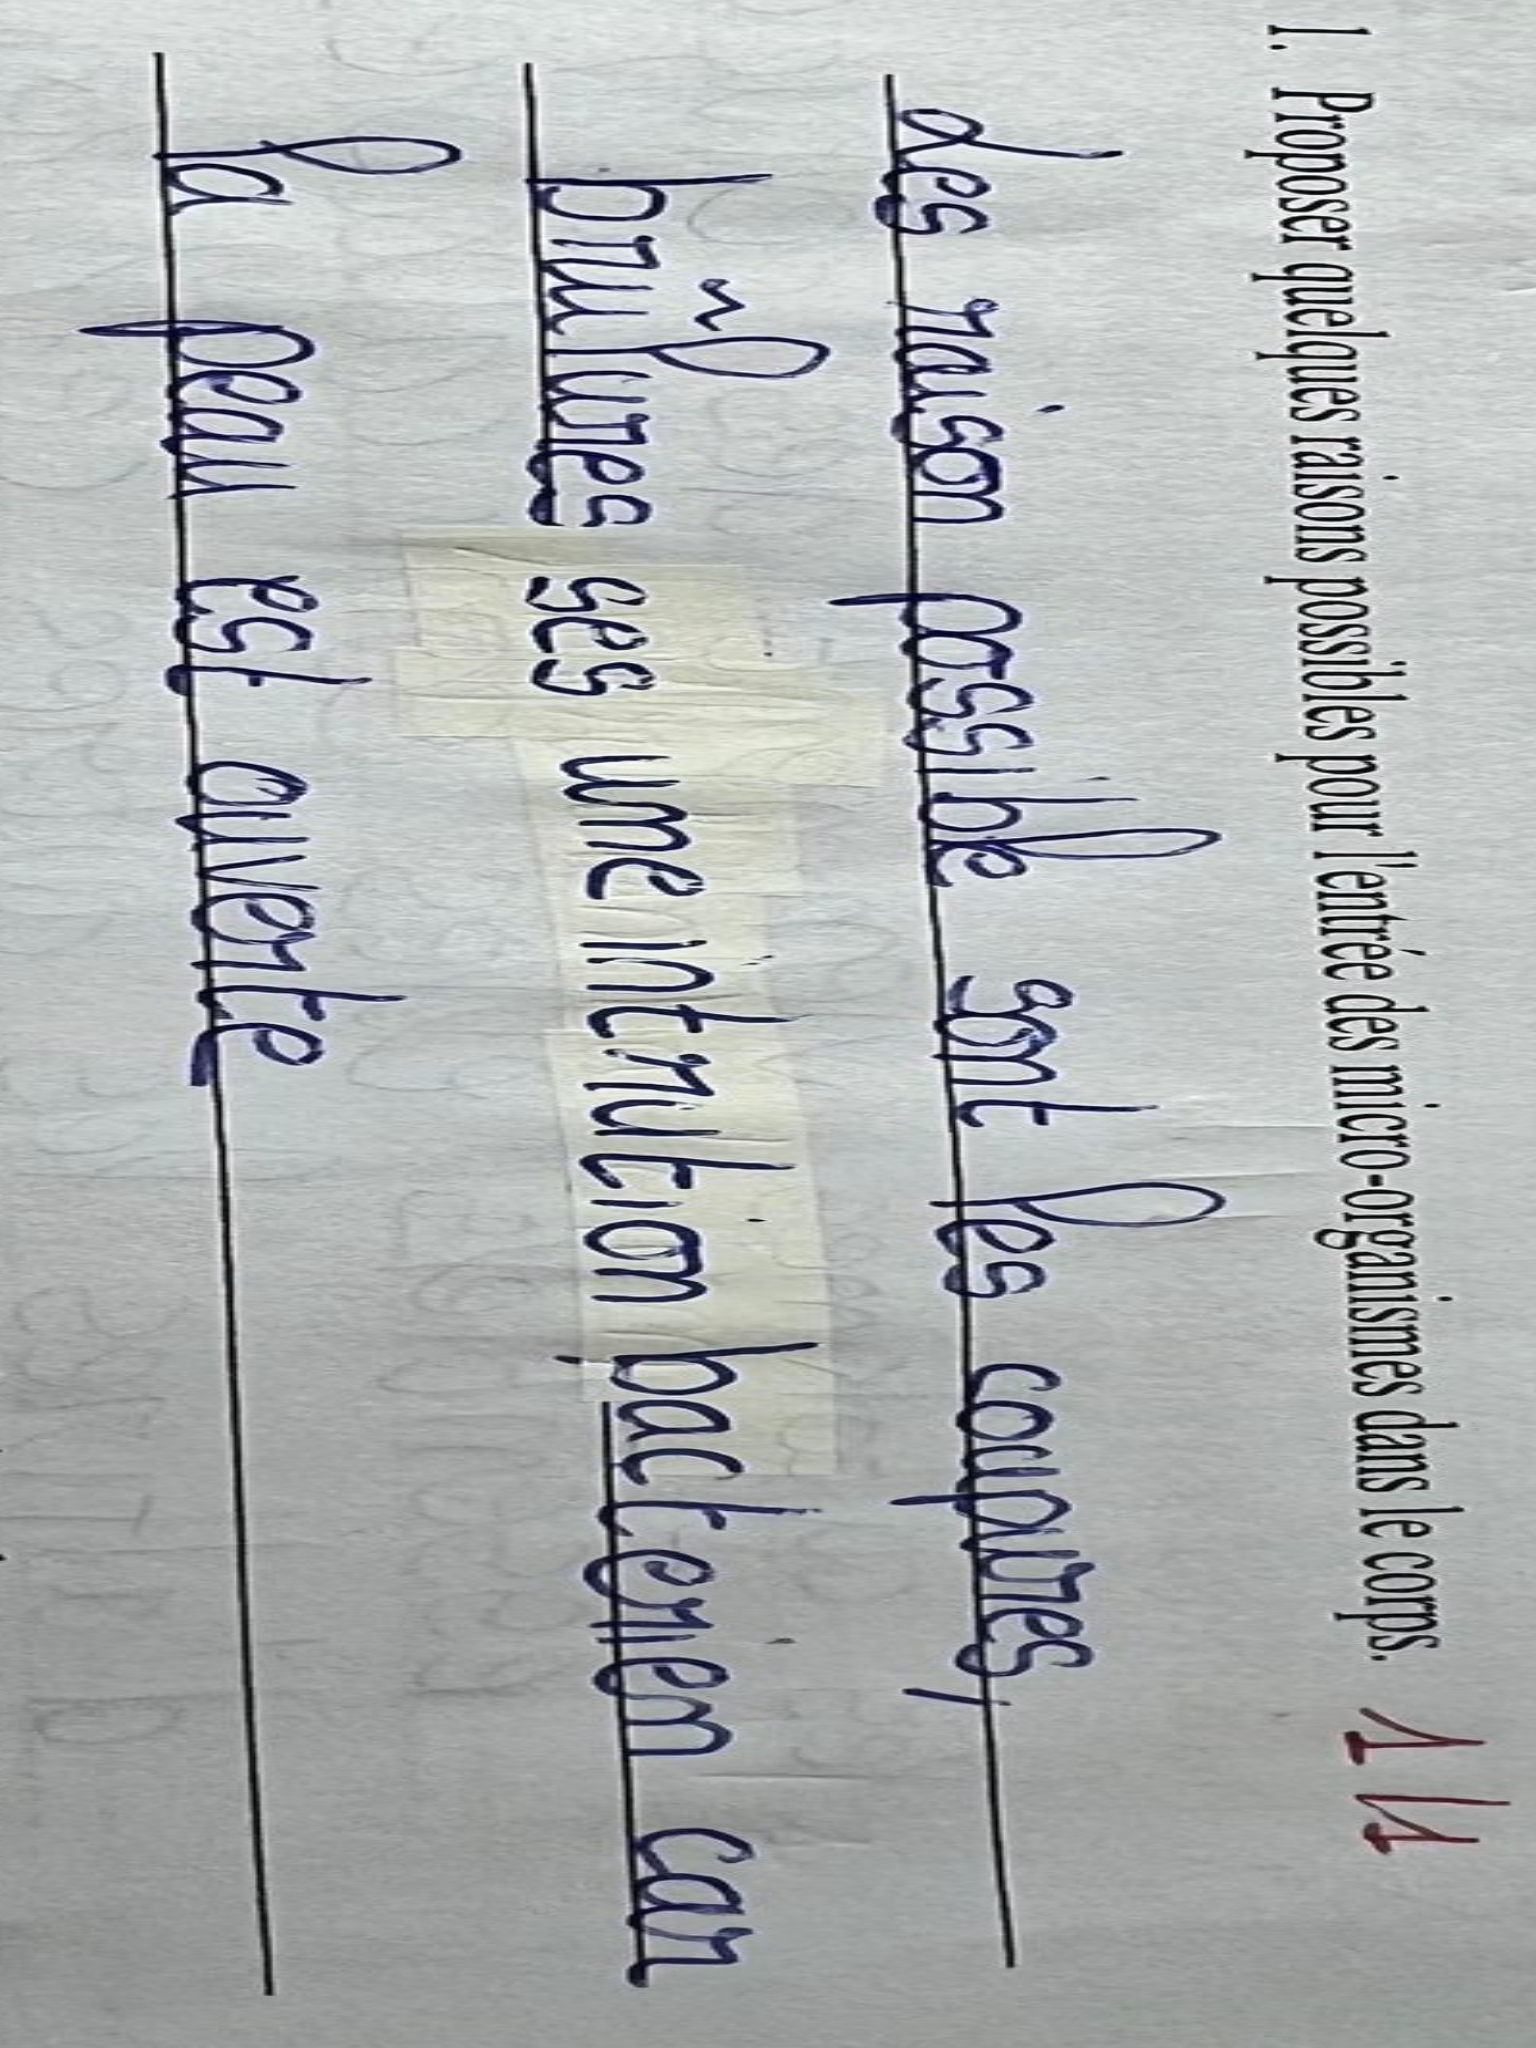 1. Proposer quelques raisons possibles pour l'entrée des micro-organismes dans le corps. 1 11
Les raison possible sont les coupures,
brûlures ses une intrution bacterien car
la peau est ouverte